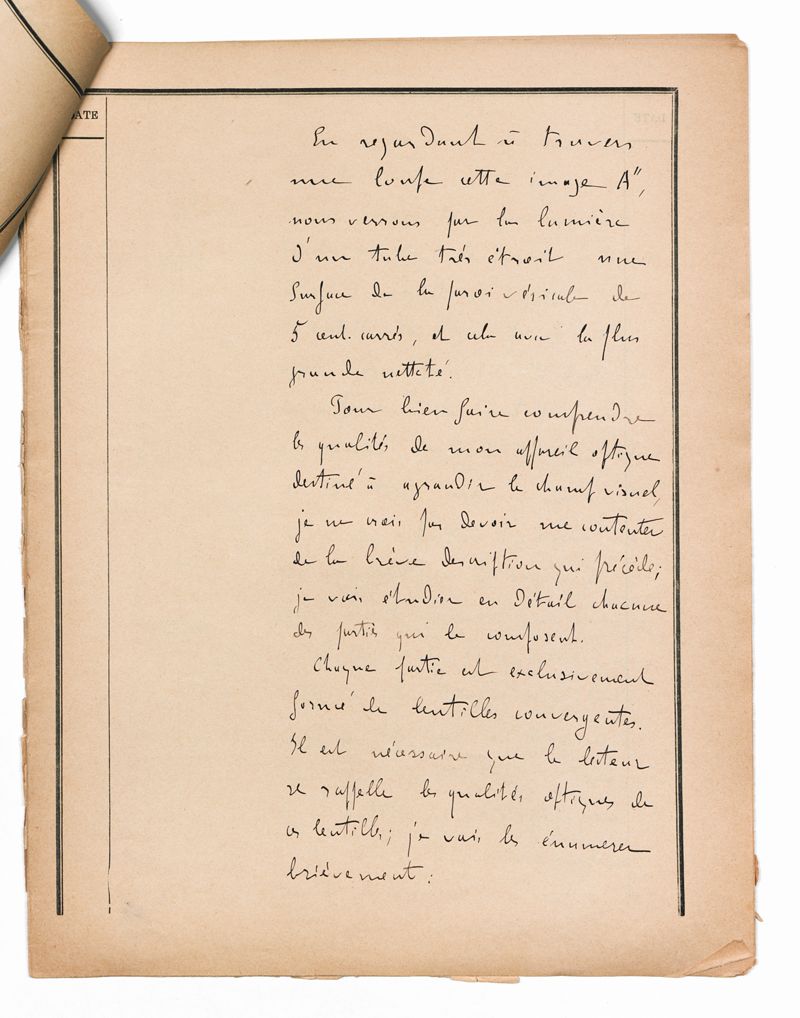 DATE
En regardant à travers
une loupe cette image A",
nous verrons par la lumière
d'un tube très étroit une
surface de la paroi vésicale de
5 cent. carrés, et cela avec la plus
grande netteté.
Pour bien faire comprendre
les qualités de mon appareil optique
destiné à agrandir le champ visuel,
je ne crois pas devoir me contenter
de la brève description qui précède;
je vais étudier en détail chacune
des parties qui le composent.
Chaque partie est exclusivement
formé de lentilles convergentes.
Il est nécessaire que le lecteur
se rappelle les qualités optiques de
ces lentilles; je vais les énumerer
brièvement: